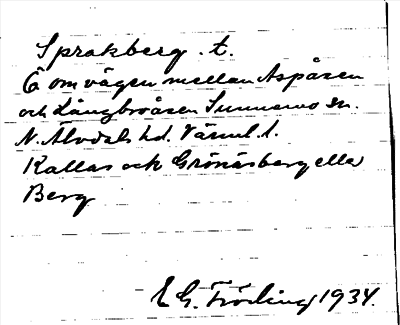 Sprakberg. t.
Ö om vägen mellan Aspåsen
och Långbroåsen Sunnemo sn.
N. Älvdals hd. Värml. l.
Kallas och Grönåsberg eller
Berg
E G. Fröding 1934.